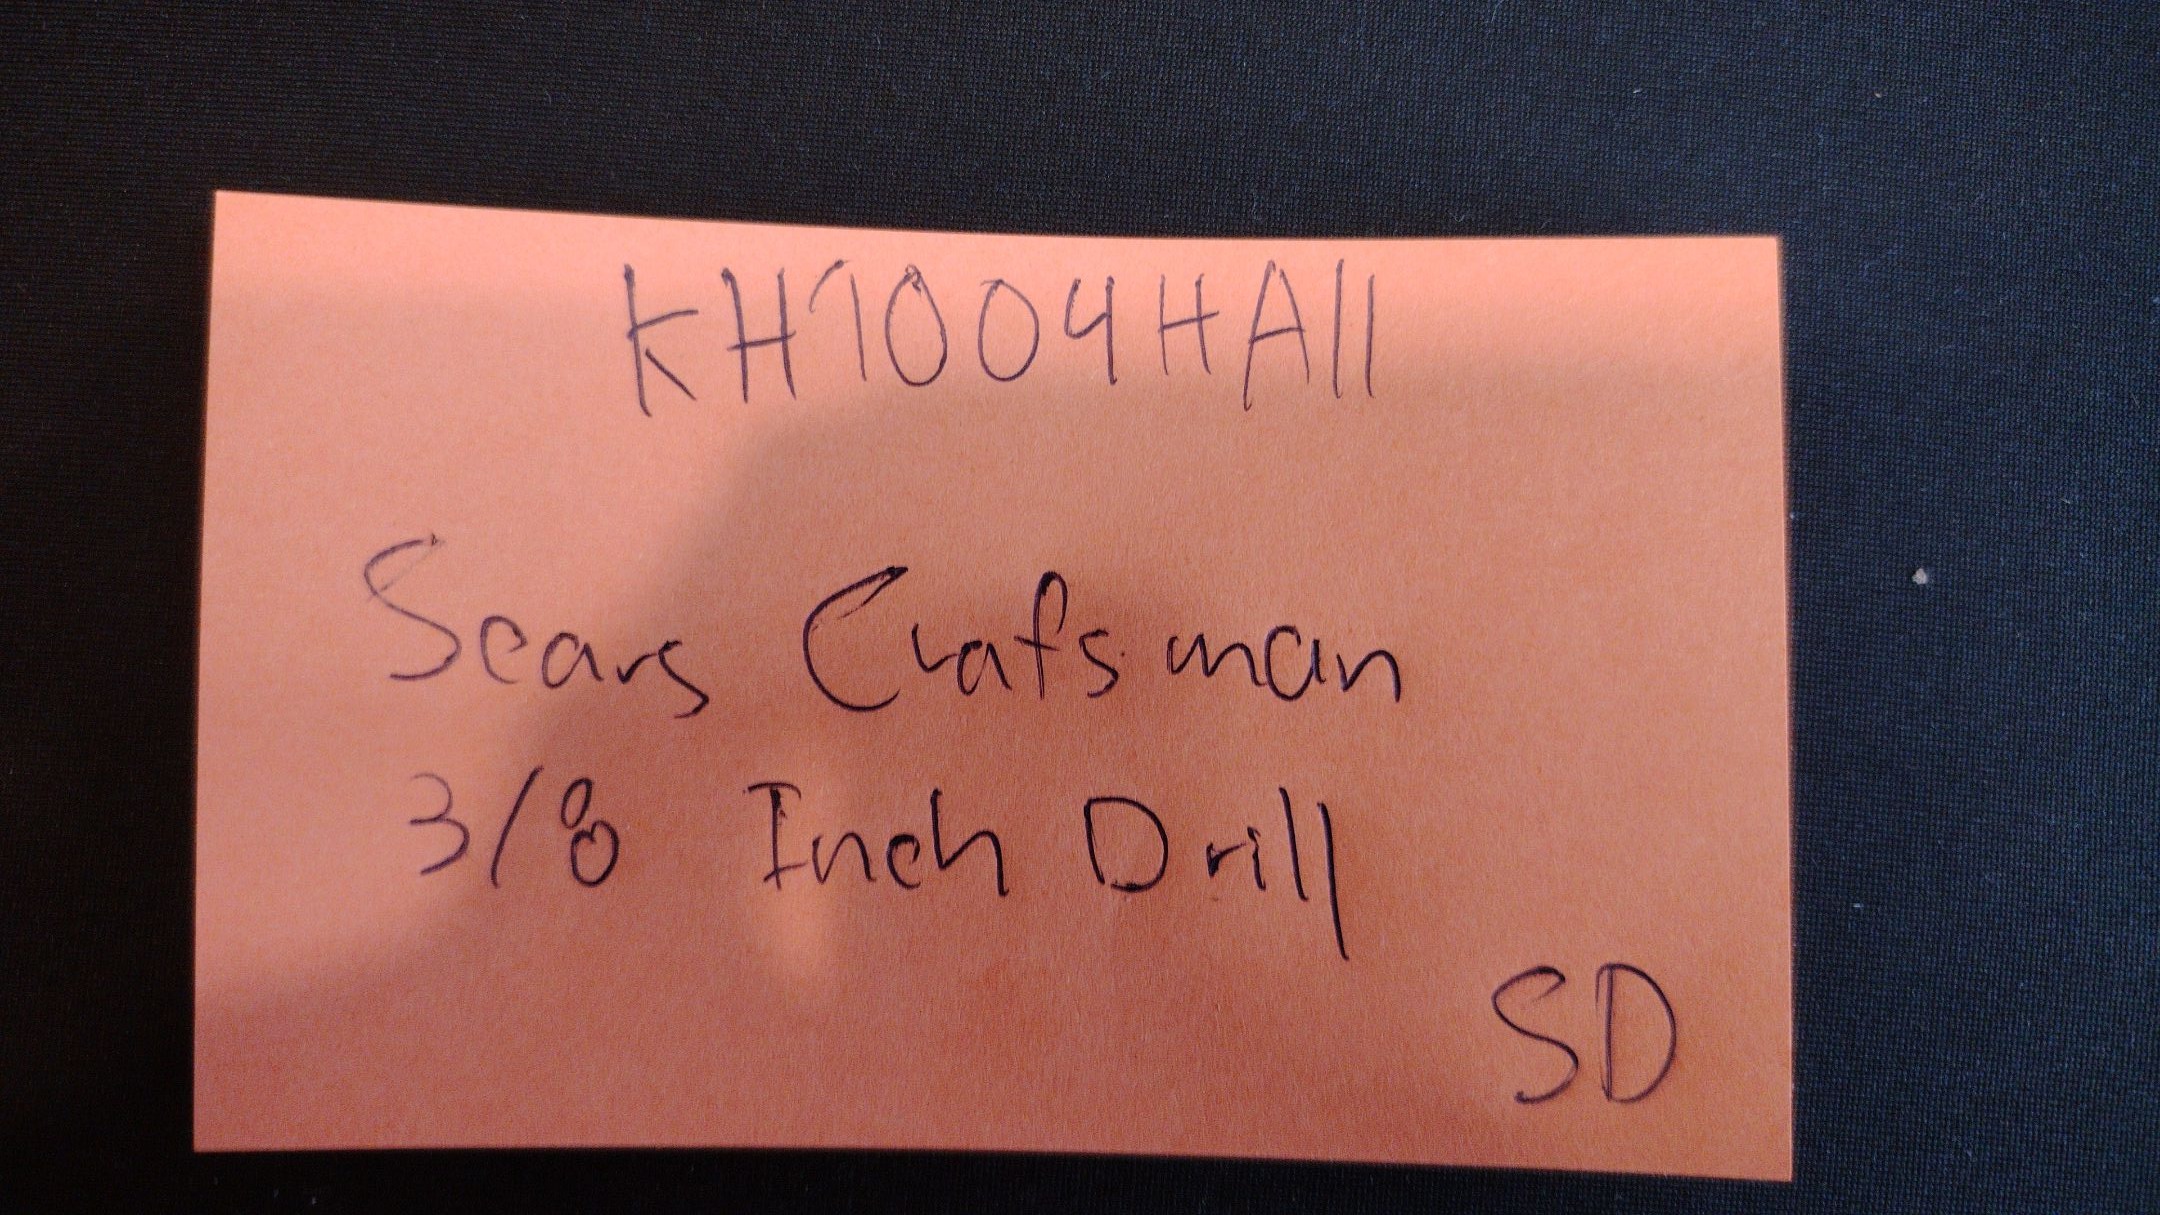 KH1004HA11
Sears Crafsman
3/8 Inch Drill
SD